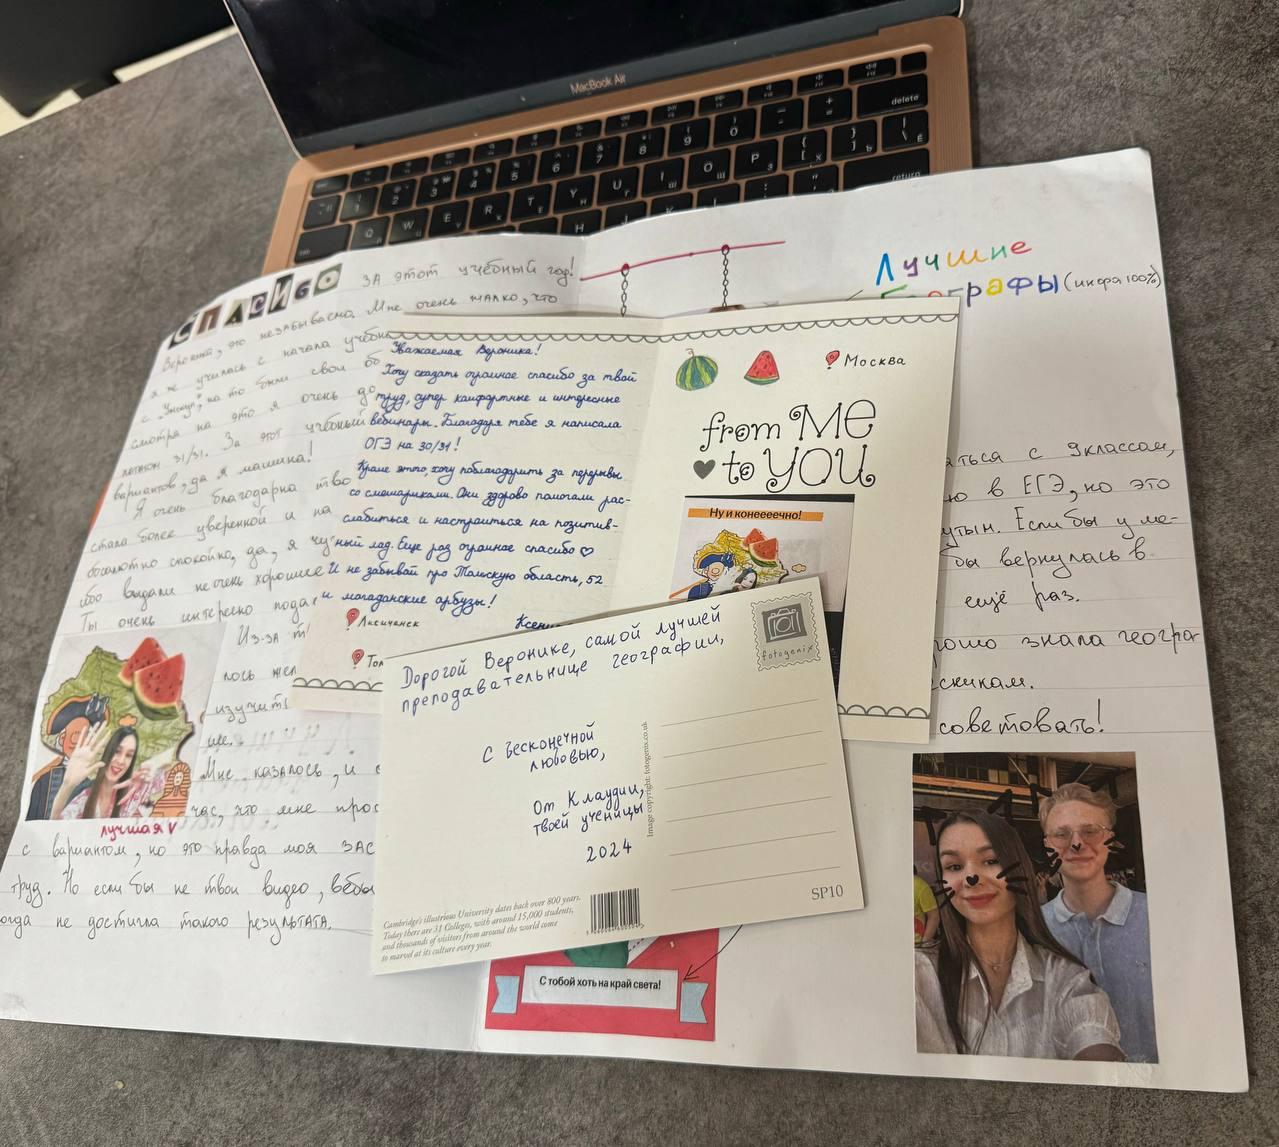 MacBook Air
delete
return
СПАСИБО за этот учебный год!
Вероника, это незабываемо. Мне очень жалко, что
я не училась с начала учебн
с "Умскул", на то были свои об
смотря на это я очень до
31/31. За этот учебный
вариантов, да я машина!
Я очень благодарна тво
стала более уверенной и на
абсолютно спокойно, да, я чу
ибо выдали не очень хорошие
Ты очень интересно пода
Из-за т
лось жел
изучит
ие.
Мне казалось, и с
час, что мне прос
с вариантом, но это правда моя зас
труд. Но если бы не твои видео, вебы
огда не достигла такого результата.
лучшая
Уважаемая Вероника!
Хочу сказать огромное спасибо за твой
труд, супер комфортные и интересные
вебинары. Благодаря тебе я написала
ОГЭ на 30/31!
Кроме этого, хочу поблагодарить за перерывы
со смешариками. Они здорово помогали рас-
слабиться и настроиться на позитив-
ный лад. Еще раз огромное спасибо ♡
И не забывай про Томскую область, 52
и магаданские арбузы!
Ксени
Лисичанск
Том
Москва
from ME
to YOU
Ну и конееееечно!
Лучшие
географы (инфа 100%)
аться с 9 классом,
ю в ЕГЭ, но это
утын. Если бы у ме-
бы вернулась в
ещё раз.
рошо знала геогра
советовать!
Дорогой Веронике, самой лучшей
преподавательнице географии,
с бесконечной
любовью,
от Клаудии,
твоей ученицы
2024
fotogenix
Image copyright: fotogenix.co.uk
SP10
Cambridge's illustrious University dates back over 800 years.
Today there are 31 Colleges, with around 15,000 students,
and thousands of visitors from around the world come
to marvel at its culture every year.
С тобой хоть на край света!